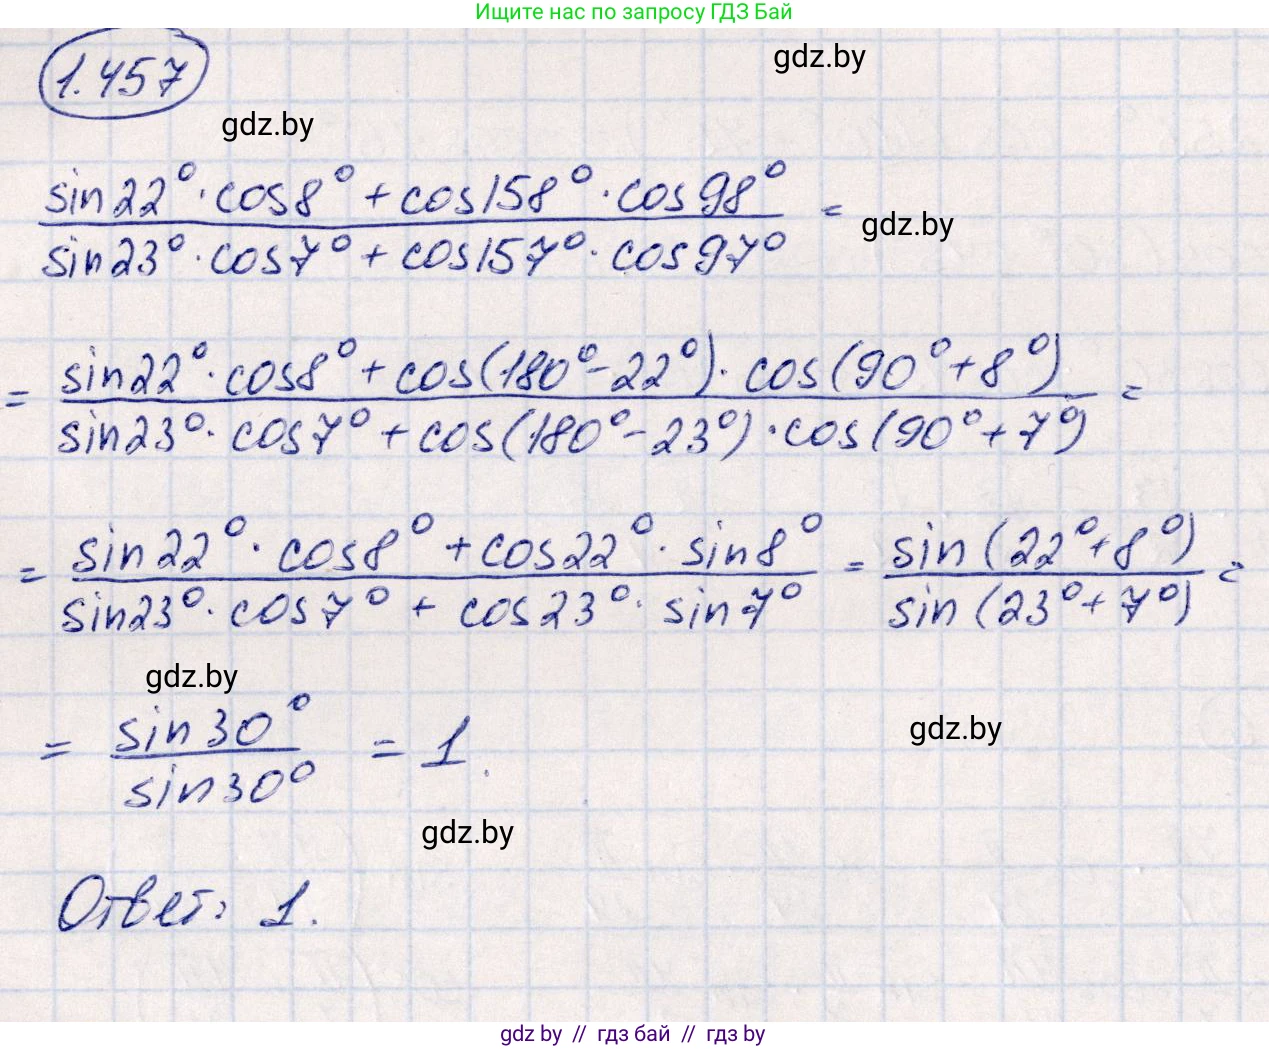 Ищите нас по запросу ГДЗ Бай
1.457
gdz.by
gdz.by
sin22°·cos8° + cos158°·cos98° =
sin23°·cos7° + cos157°·cos97°
gdz.by
= sin22°·cos8° + cos(180°-22°)·cos(90°+8°) =
sin23°·cos7° + cos(180°-23°)·cos(90°+7°)
= sin22°·cos8° + cos22°·sin8° = sin(22°+8°) =
sin23°·cos7° + cos23°·sin7° sin(23°+7°)
gdz.by
= sin30° = 1.
sin30°
gdz.by
gdz.by
Ответ: 1.
gdz.by // гдз бай // гдз by